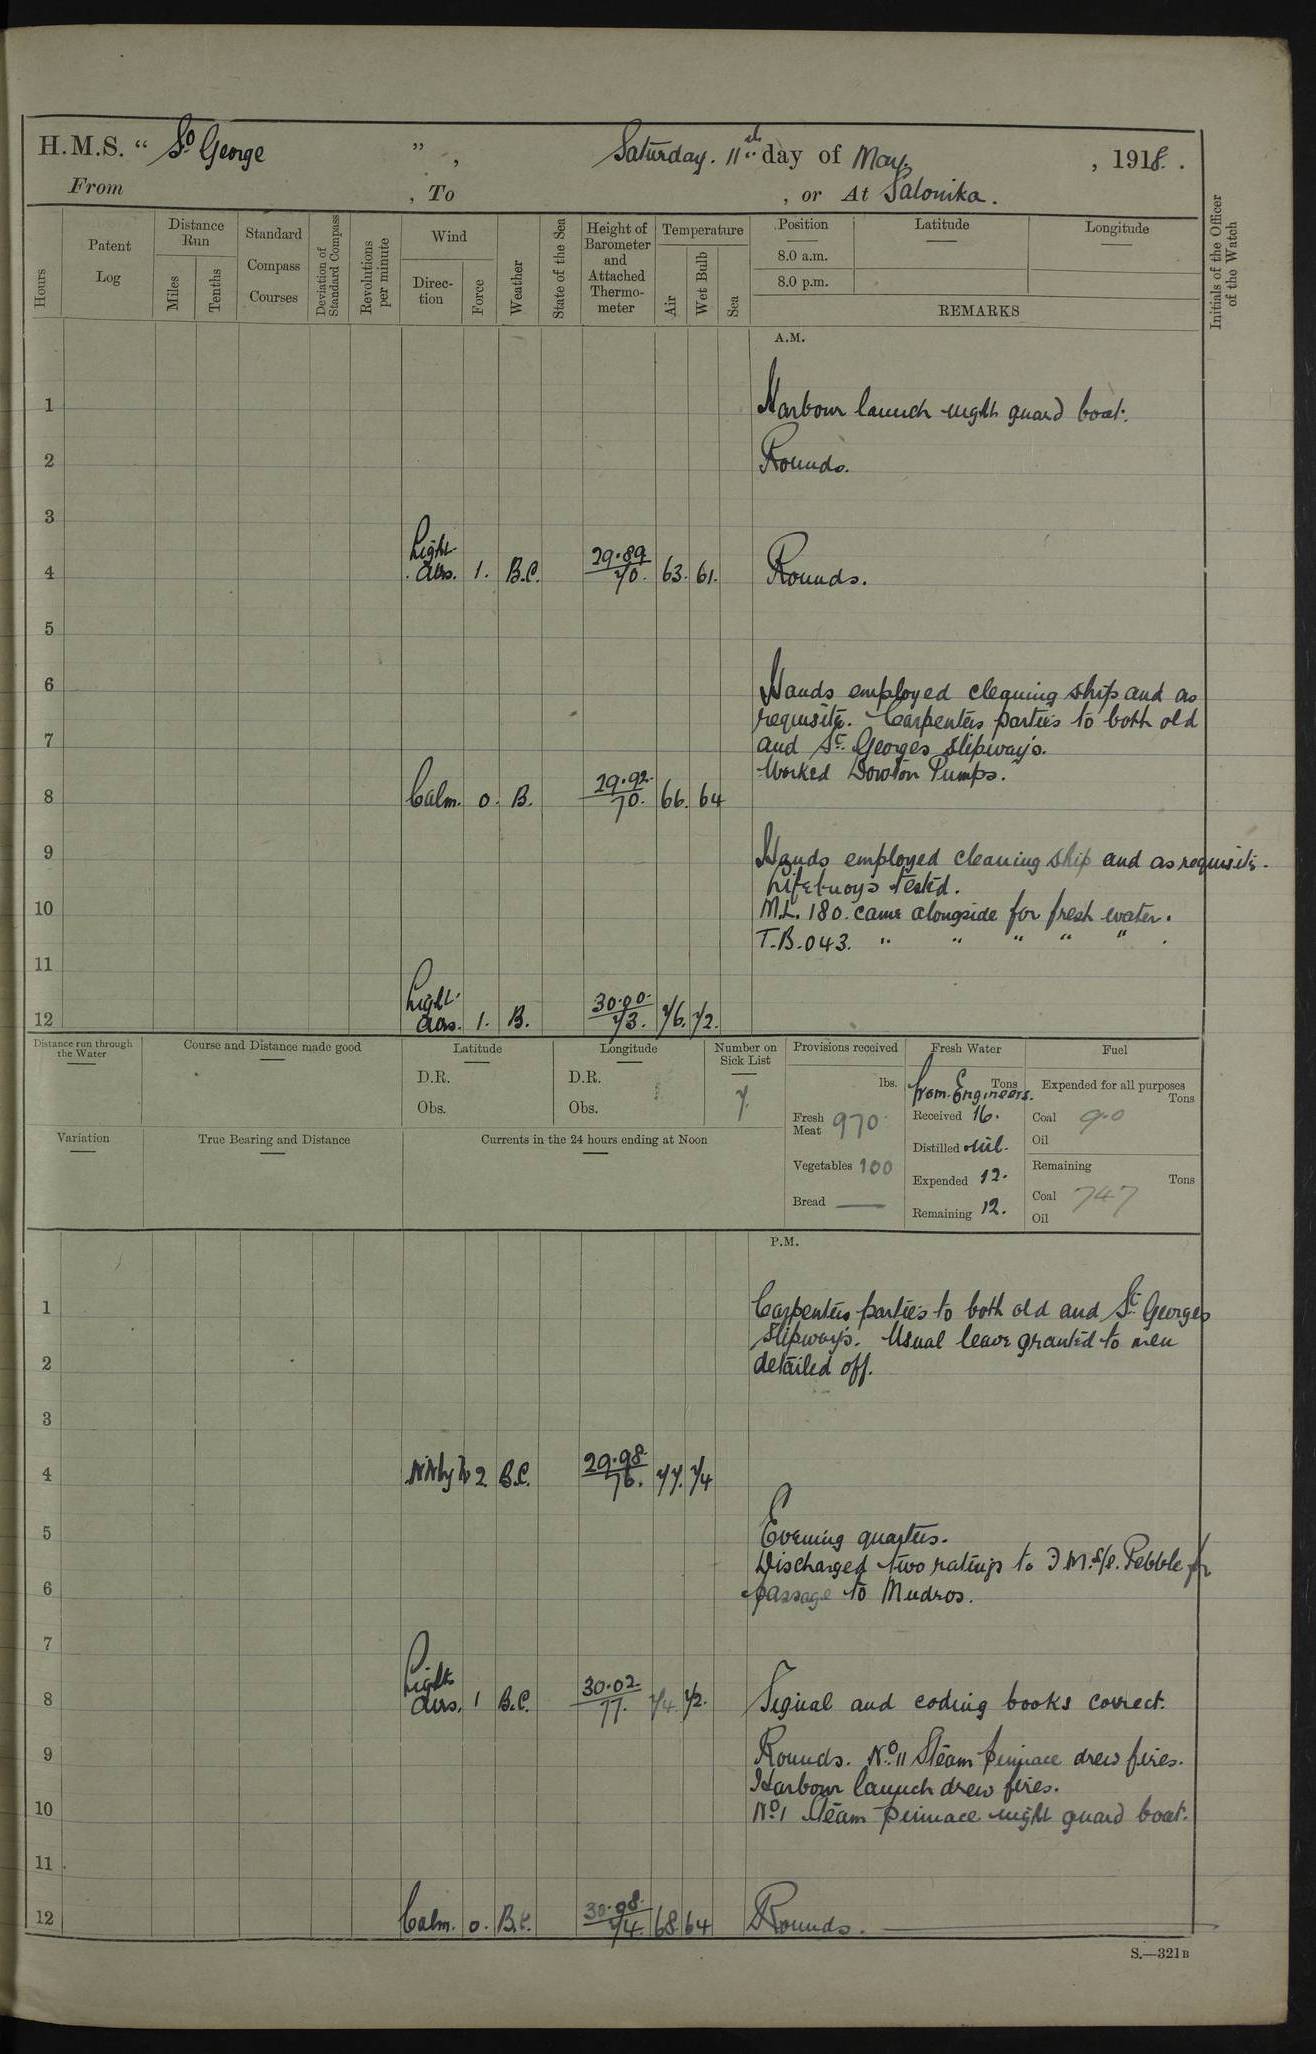 H.M.S. “ St George ” , Saturday. 11th day of May , 1918.
From , To , or At Salonika.
Hours
Patent Log
Distance Run
Miles
Tenths
Standard Compass Courses
Deviation of Standard Compass
Revolutions per minute
Wind
Direction
Force
Weather
State of the Sea
Height of Barometer and Attached Thermometer
Temperature
Air
Wet Bulb
Sea
Position
8.0 a.m.
8.0 p.m.
Latitude
Longitude
REMARKS
Initials of the Officer of the Watch
A.M.
1 Harbour launch night guard boat.
2 Rounds.
3
4 Light airs. 1. B.C. 29.89 70. 63. 61. Rounds.
5
6 Hands employed cleaning ship and as
requisite. Carpenters parties to both old
7 and St. Georges slipways.
Worked Downton Pumps.
8 Calm. 0. B. 29.92. 70. 66. 64
9 Hands employed cleaning ship and as requisite.
Lifebuoys tested.
10 M.L. 180. came alongside for fresh water.
T.B. 043. " " " " " .
11
12 Light airs. 1. B. 30.00. 73. 76. 72.
Distance run through the Water
Course and Distance made good
Latitude
D.R.
Obs.
Longitude
D.R.
Obs.
Number on Sick List
7.
Provisions received
lbs.
Fresh Meat 970
Vegetables 100
Bread —
Fresh Water
Tons
from Engineers.
Received 16.
Distilled nil.
Expended 12.
Remaining 12.
Fuel
Expended for all purposes
Tons
Coal 9.0
Oil
Remaining
Tons
Coal 747
Oil
Variation
True Bearing and Distance
Currents in the 24 hours ending at Noon
P.M.
1 Carpenters parties to both old and St. Georges
slipways. Usual leave granted to men
2 detailed off.
3
4 2 B.C. 29.98. 76. 77. 74
5 Evening quarters.
Discharged two ratings to Pebble for
6 passage to Mudros.
7
8 Light airs. 1 B.C. 30.02. 77. 74. 72. Signal and coding books correct.
9 Rounds. No. 11 Steam pinnace drew fires.
Harbour launch drew fires.
10 No. 1 Steam pinnace night guard boat.
11
12 Calm. 0. B.C. 30.08. 74. 68 64 Rounds.
S.—321B